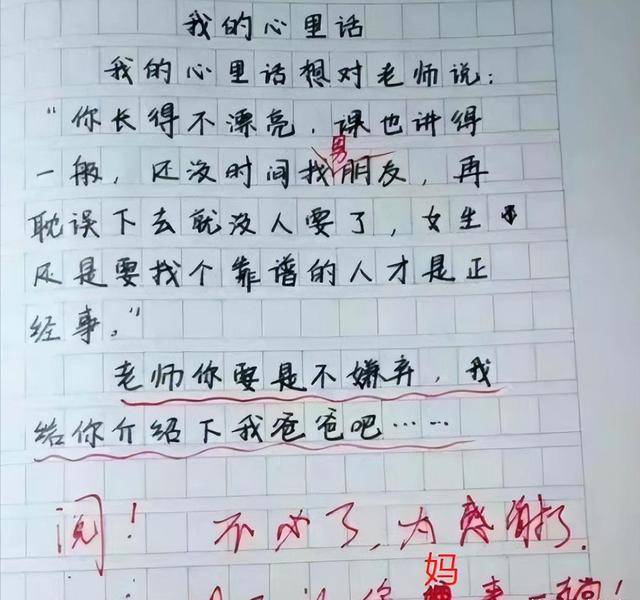 我的心里话
我的心里话想对老师说:
“你长得不漂亮,课也讲得
一般,还没时间找男朋友,再
耽误下去就没人要了,女生
还是要找个靠谱的人才是正
经事。”
老师你要是不嫌弃,我
给你介绍下我爸爸吧……
阅! 不必了,太感谢了.
你妈来一趟!